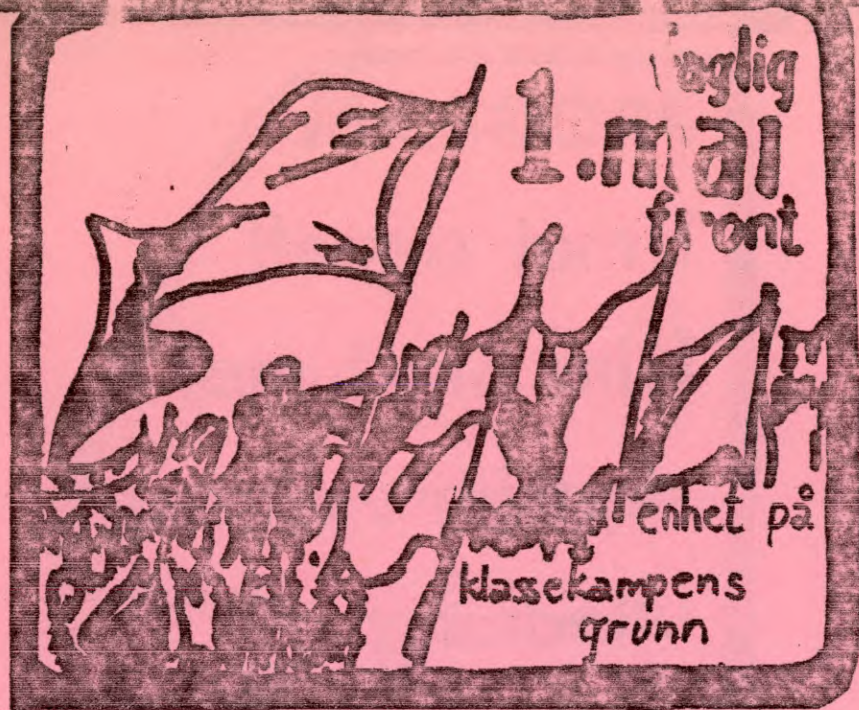 faglig
1. mai
front
enhet på
klassekampens
grunn